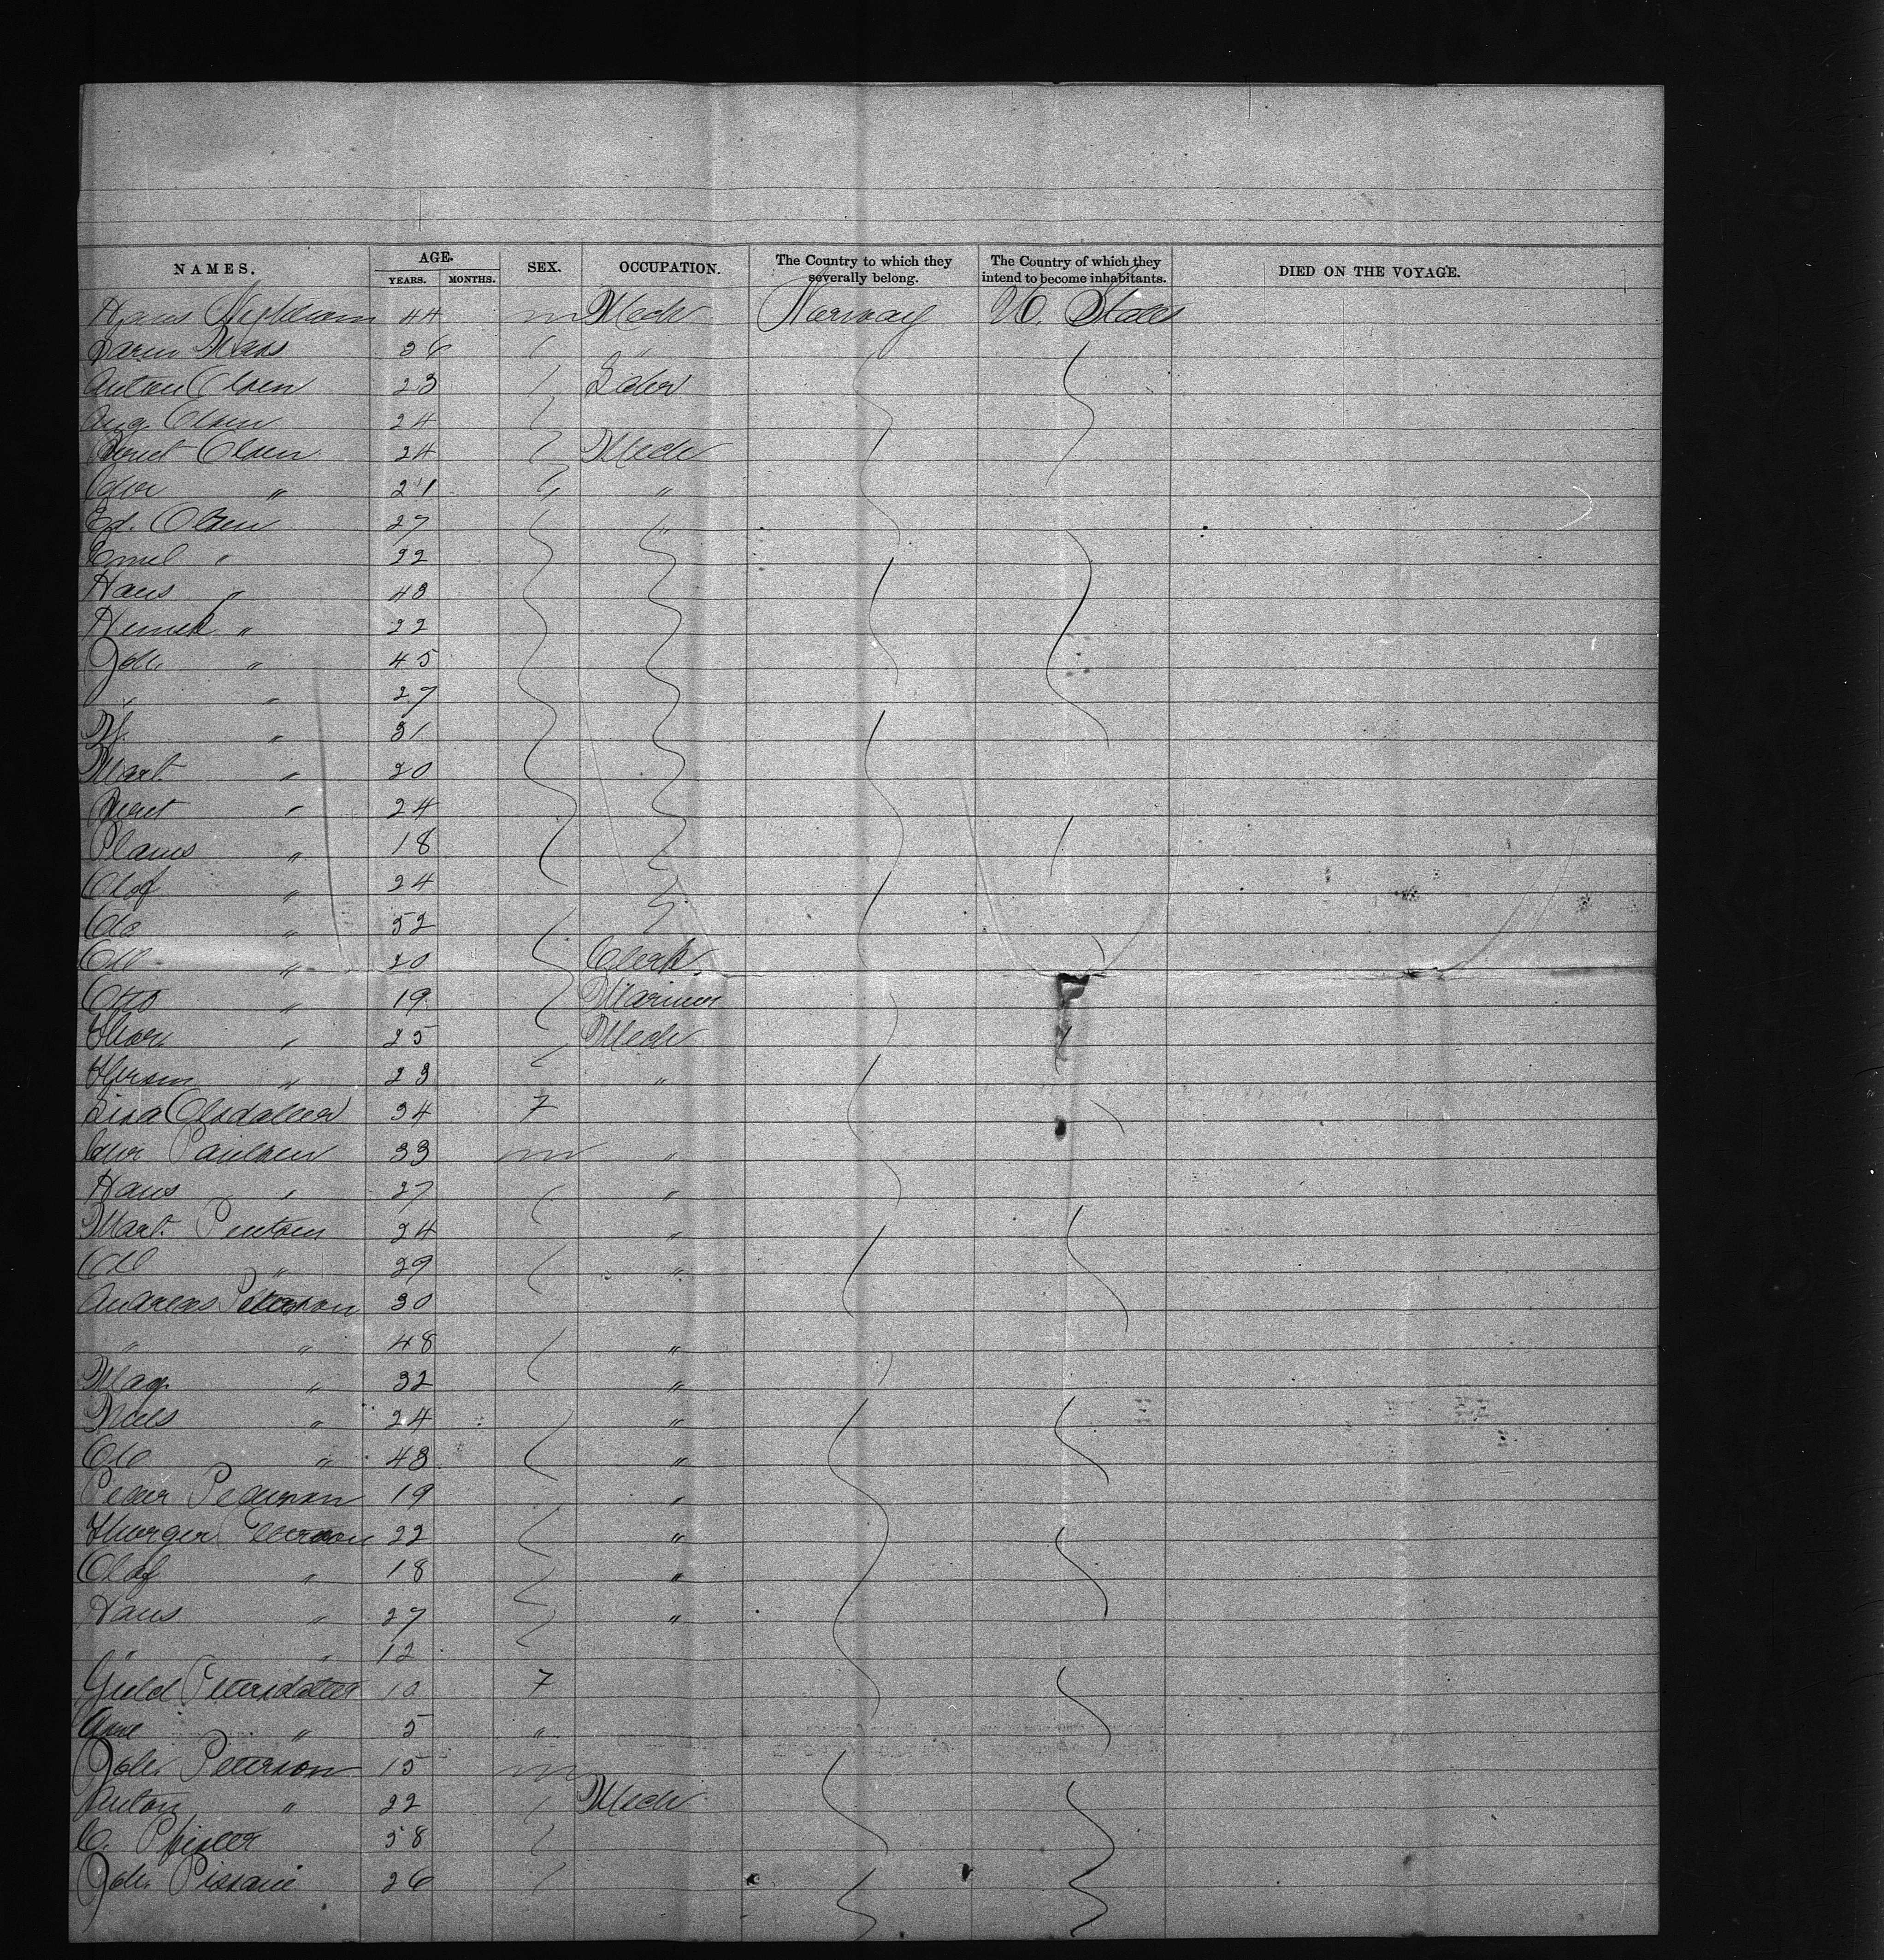 NAMES. AGE. YEARS. MONTHS. SEX. OCCUPATION. The Country to which they severally belong. The Country of which they intend to become inhabitants. DIED ON THE VOYAGE.
44 m Mech Norway U. States
36 "
Anton Olsen 23 Labr
Aug. Olsen 24
Bernt Olsen 24 Mech
" 21 "
Ed. Olsen 27 "
Emil " 22
Hans " 43
" 22
Joh. " 45
" " 27
" 31
Mart " 20
Bernt " 24
" 18
Olof " 24
Ole " 52
Ole " 20 Clerk
Otto " 19 Mariner
Thore " 25 Mech
" 23 "
Lina Olsdatter 34 F
Paulsen 33 m "
Hans " 27 "
Mart. 24 "
Ole " 29 "
Andreas Peterson 30
" " 48 "
Mag. " 32 "
Niels " 24 "
Ole " 43 "
Peder Pederson 19 "
22 "
Olof " 18 "
Hans " 27 "
" " 12
Petersdatter 10 F
Anne " 5 "
Joh. Peterson 15 m
Anton " 22 Mech
C. Pfister 58
Joh. 26